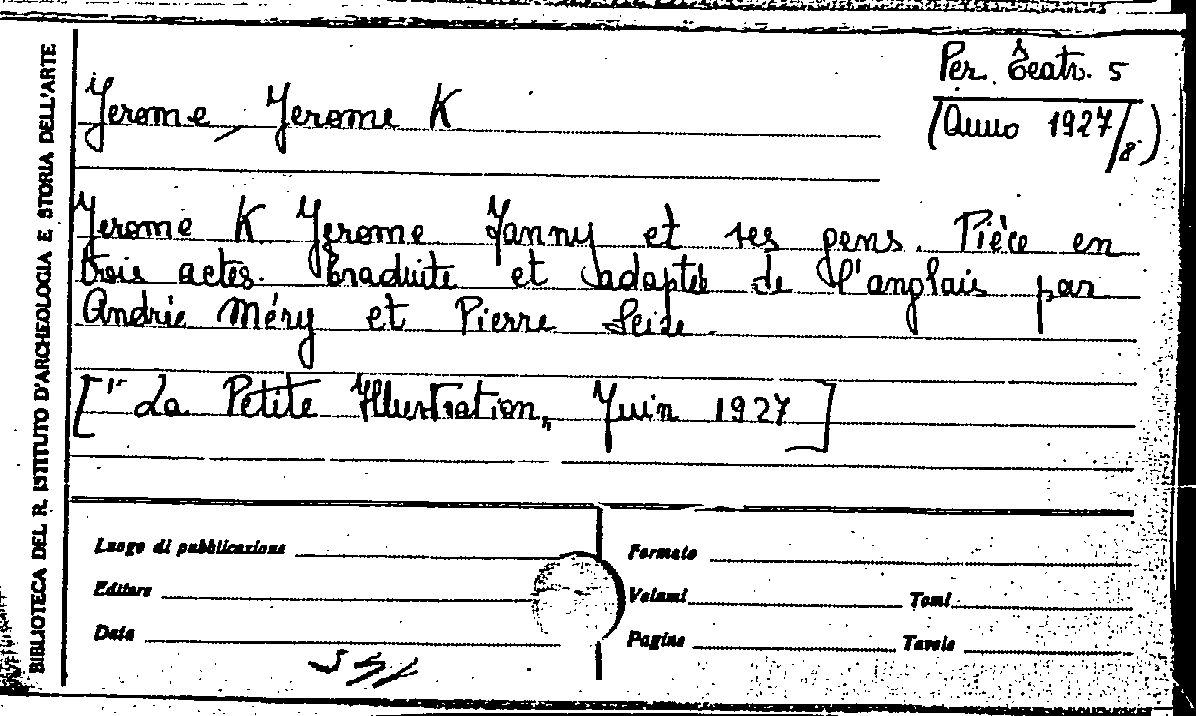 BIBLIOTECA DEL R. ISTITUTO D'ARCHEOLOGIA E STORIA DELL'ARTE
Per. Teatr. 5
(Anno 1927/8)
Jerome, Jerome K
Jerome K Jerome Fanny et ses gens. Pièce en
trois actes. Traduite et adaptée de l'anglais par
Andrée Méry et Pierre Seize.
["La Petite Illustration„ Juin 1927]
Luogo di pubblicazione
Editore
Data
Formato
Volumi Tomi
Pagine Tavole